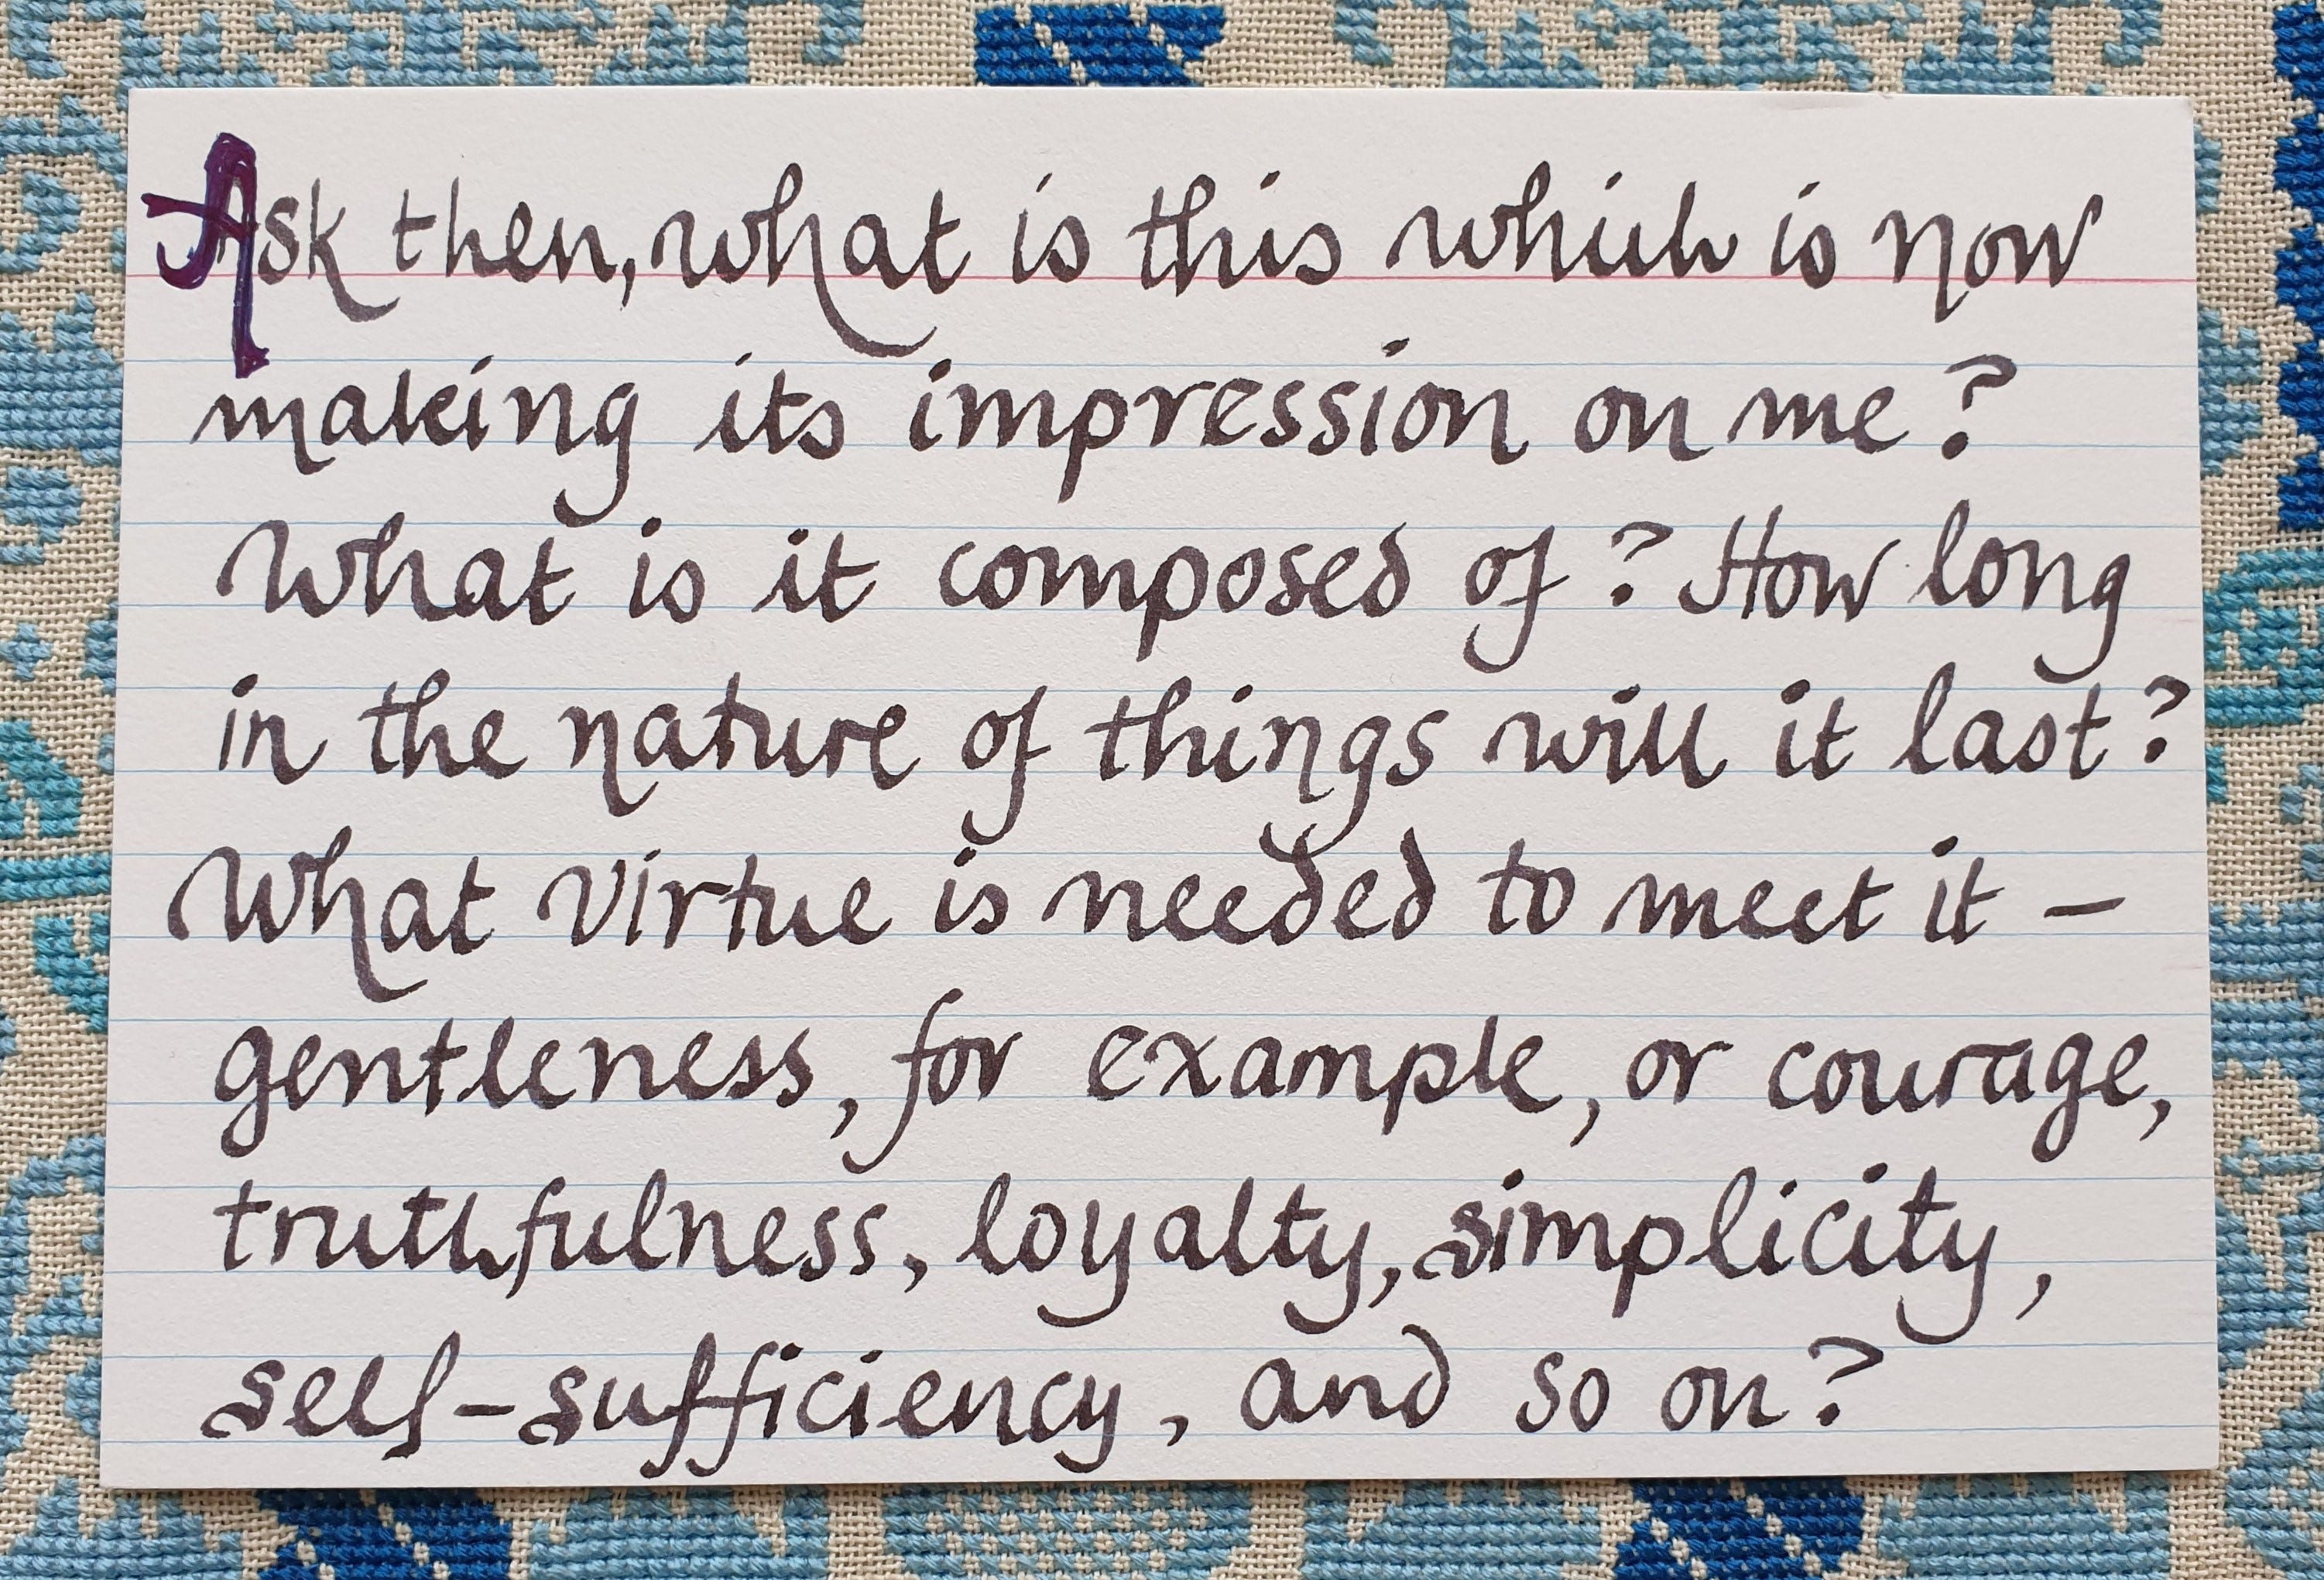 Ask then, what is this which is now
making its impression on me?
What is it composed of? How long
in the nature of things will it last?
What virtue is needed to meet it –
gentleness, for example, or courage,
truthfulness, loyalty, simplicity,
self-sufficiency, and so on?